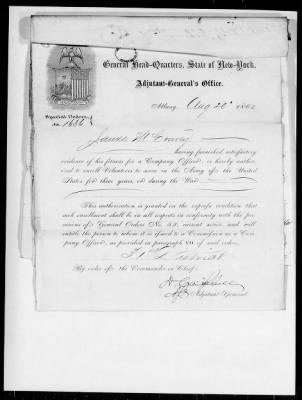 General Head-Quarters, State of New-York,
Adjutant-General's Office.
Albany, Aug 20 186
Special Orders,
No. 1686
James M
having furnished satisfactory
evidence of his fitness for a Company Officer, is hereby author-
ized to enroll Volunteers to serve in the Army of the United
States for three years or during the War
This authorization is granted on the express condition that
such enrollment shall be in all respects in conformity with the pro-
visions of General Orders No. 52, current series, and will
entitle the person to whom it is issued to a Commission as a Com-
pany Officer, as provided in paragraph VII of said order.
By order of the Commander in Chief:
Adjutant General